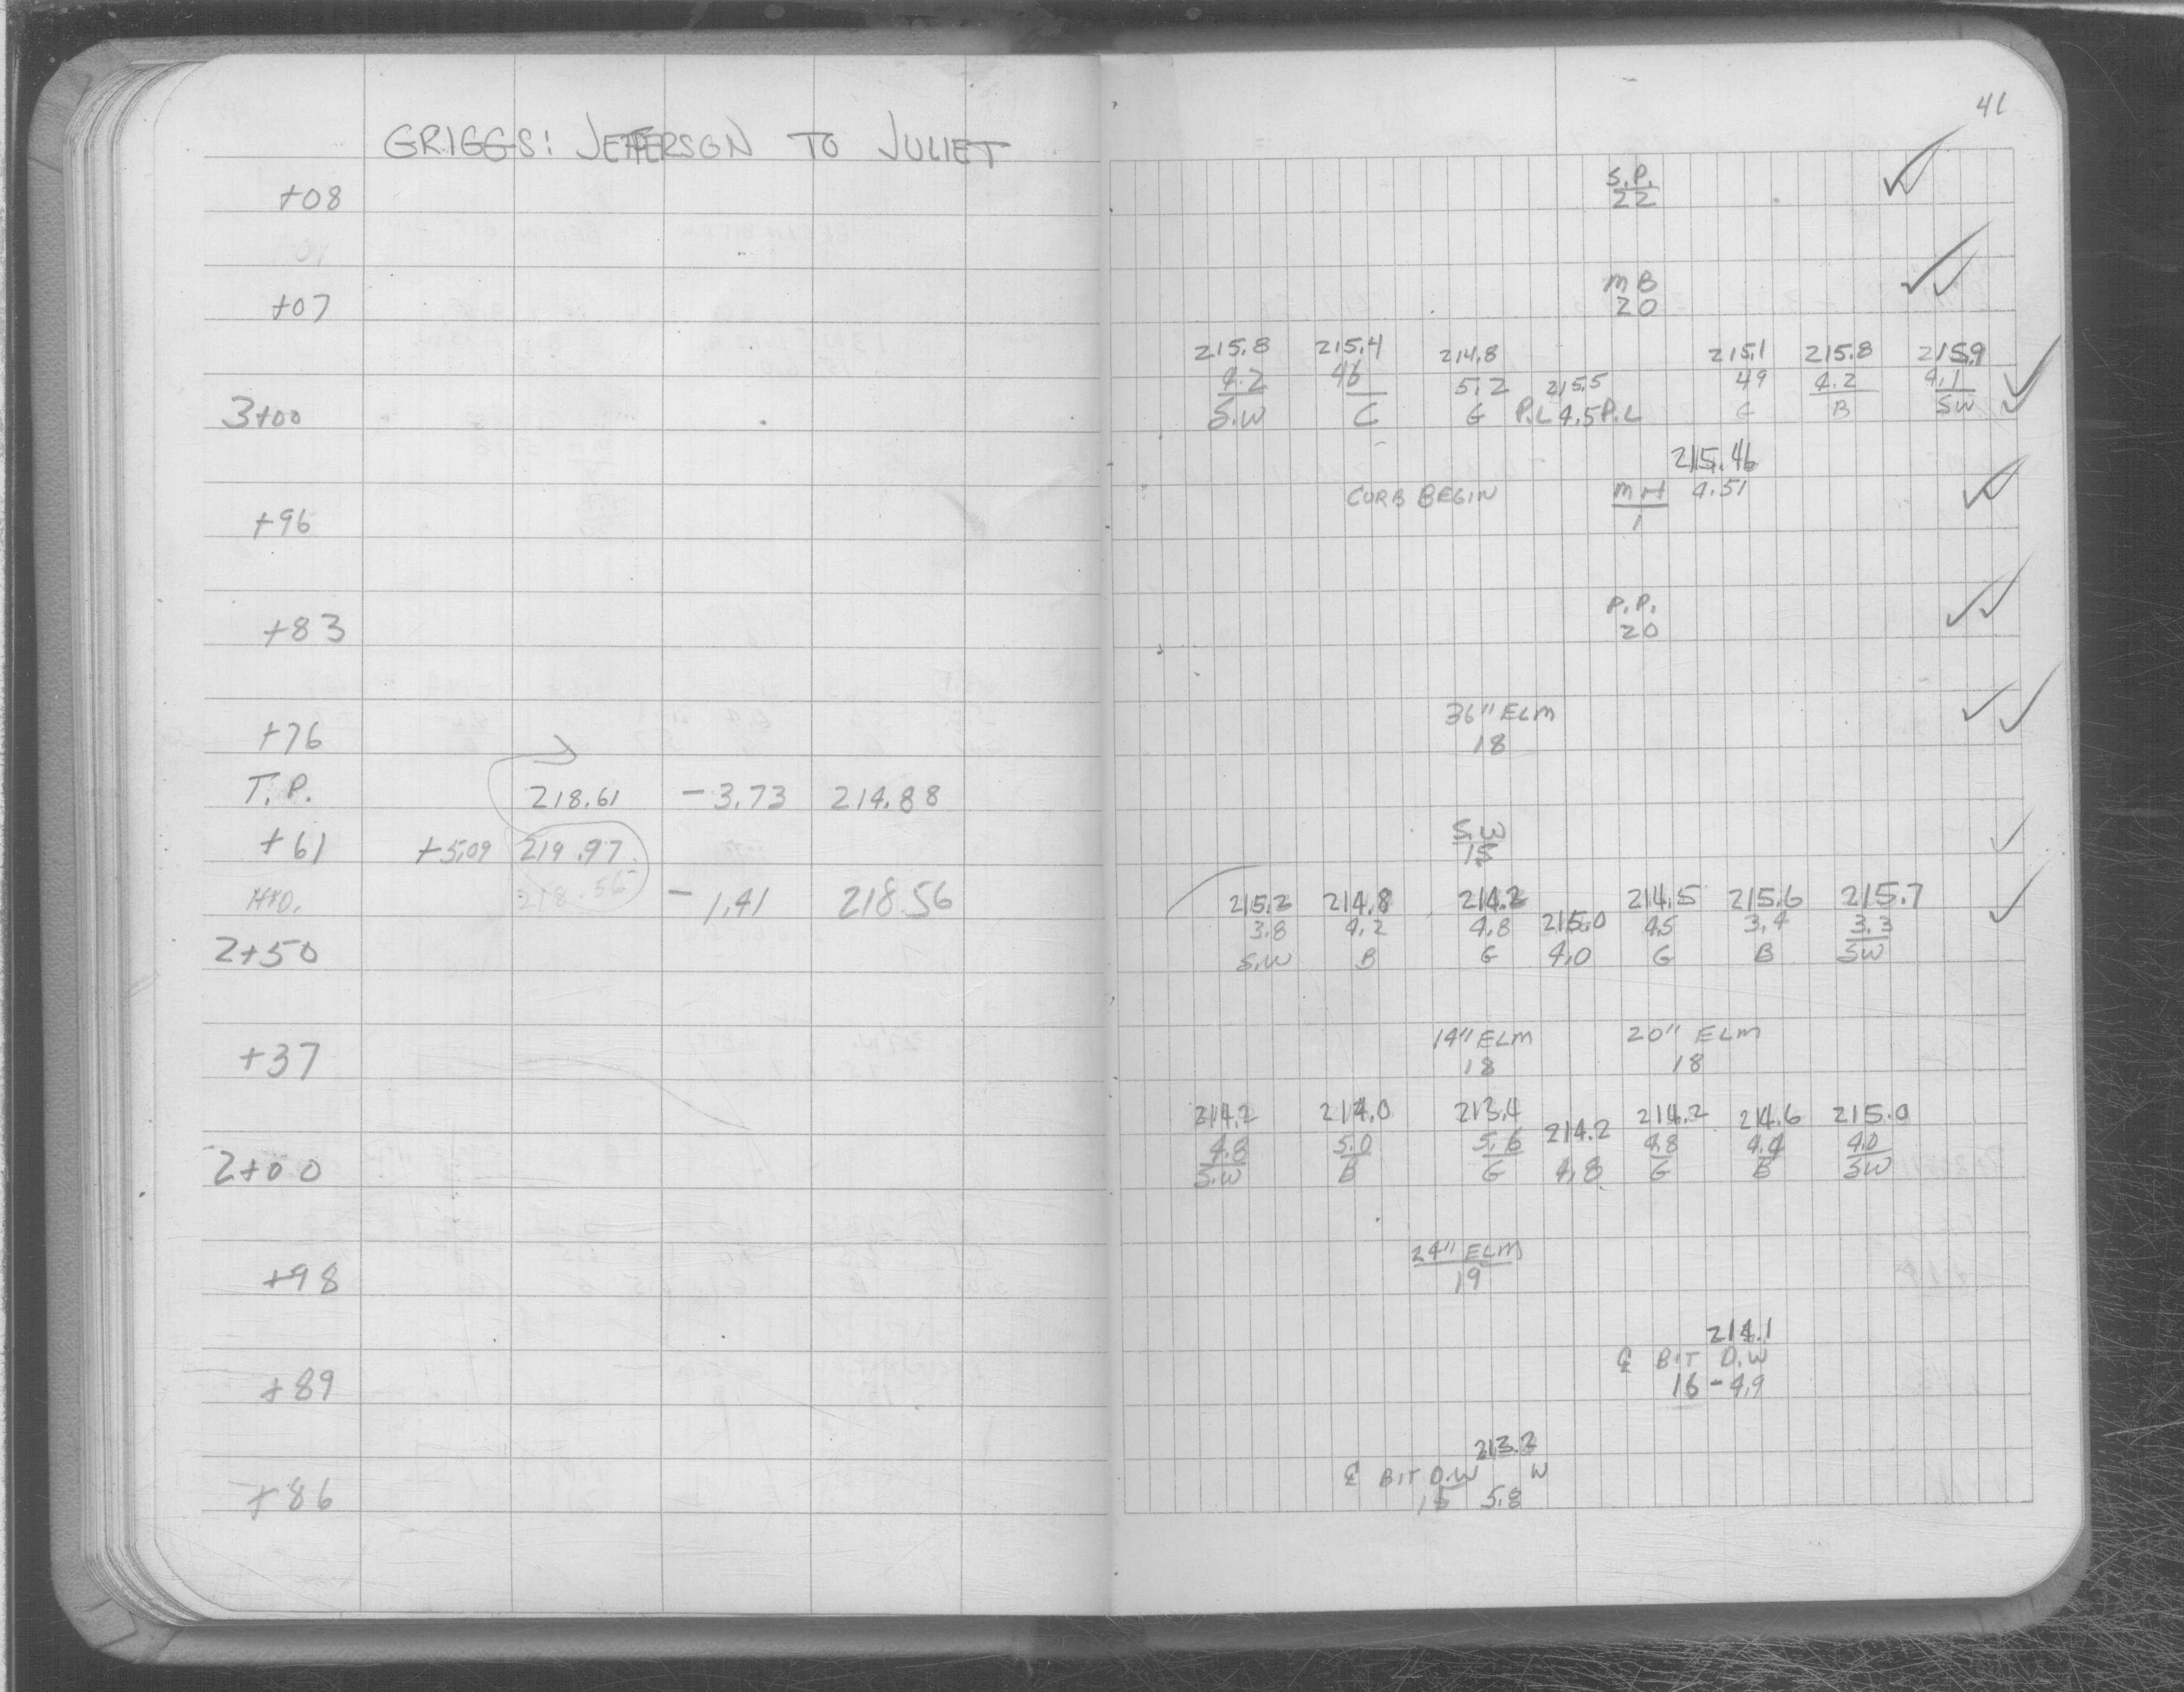 41
GRIGGS: JEFFERSON TO JULIET
+08 S.P.
22
+07 MB
20
215.8 215.4 214.8 215.1 215.8 215.9
4.2 46 5.2 215.5 49 4.2 4.1
3+00 S.W C G P.L 4.5 P.L C B SW
215.46
CURB BEGIN MH 4.51
+96 1
P.P.
+83 20
36" ELM
+76 18
T.P. 218.61 -3.73 214.88
+61 +5.09 219.97 S.W
15
HYD. 218.56 -1.41 218.56 215.2 214.8 214.2 214.5 215.6 215.7
3.8 4.2 4.8 215.0 4.5 3.4 3.3
2+50 S.W B G 4.0 G B SW
14" ELM 20" ELM
+37 18 18
214.2 214.0 213.4 214.2 214.2 214.6 215.0
4.8 5.0 5.6 4.8 4.4 4.0
2+00 S.W B G 4.8 G B SW
24" ELM
+98 19
214.1
℄ BIT D.W
+89 16 - 4.9
213.2
℄ BIT D.W W
+86 5.8